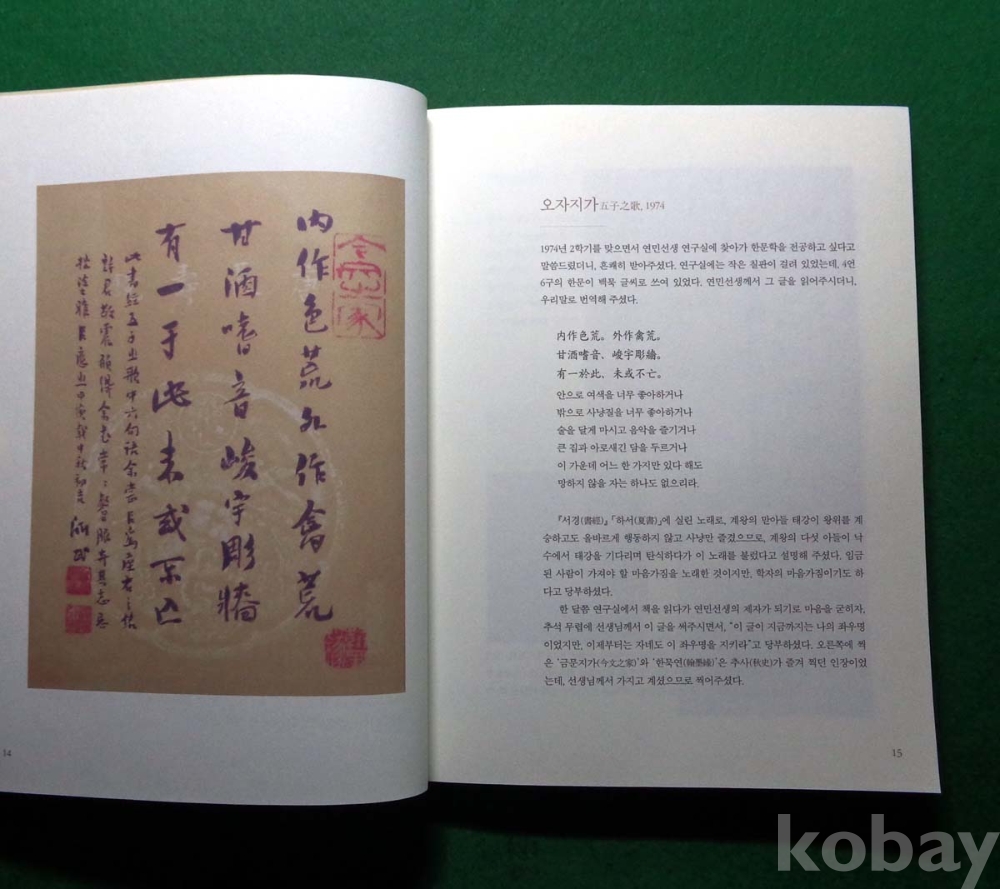 內作色荒外作禽荒
甘酒嗜音峻宇彫牆
有一于此未或不亡
此書經五子之歌中六句語余嘗自寫座右之銘
14
오자지가 五子之歌, 1974
1974년 2학기를 맞으면서 연민선생 연구실에 찾아가 한문학을 전공하고 싶다고
말씀드렸더니, 흔쾌히 받아주셨다. 연구실에는 작은 칠판이 걸려 있었는데, 4언
6구의 한문이 백묵 글씨로 쓰여 있었다. 연민선생께서 그 글을 읽어주시더니,
우리말로 번역해 주셨다.
內作色荒。外作禽荒。
甘酒嗜音、峻宇彫繪。
有一於此、未或不亡。
안으로 여색을 너무 좋아하거나
밖으로 사냥질을 너무 좋아하거나
술을 달게 마시고 음악을 즐기거나
큰 집과 아로새긴 담을 두르거나
이 가운데 어느 한 가지만 있다 해도
망하지 않을 자는 하나도 없으리라.
『서경(書經)』「하서(夏書)」에 실린 노래로, 계왕의 맏아들 태강이 왕위를 계
승하고도 올바르게 행동하지 않고 사냥만 즐겼으므로, 계왕의 다섯 아들이 낙
수에서 태강을 기다리며 탄식하다가 이 노래를 불렀다고 설명해 주셨다. 임금
된 사람이 가져야 할 마음가짐을 노래한 것이지만, 학자의 마음가짐이기도 하
다고 당부하셨다.
한 달쯤 연구실에서 책을 읽다가 연민선생의 제자가 되기로 마음을 굳히자,
추석 무렵에 선생님께서 이 글을 써주시면서, “이 글이 지금까지는 나의 좌우명
이었지만, 이제부터는 자네도 이 좌우명을 지키라”고 당부하셨다. 오른쪽에 찍
은 ‘금문지가(今文之家)’와 ‘한묵연(翰墨緣)’은 추사(秋史)가 즐겨 찍던 인장이었
는데, 선생님께서 가지고 계셨으므로 찍어주셨다.
15
kobay